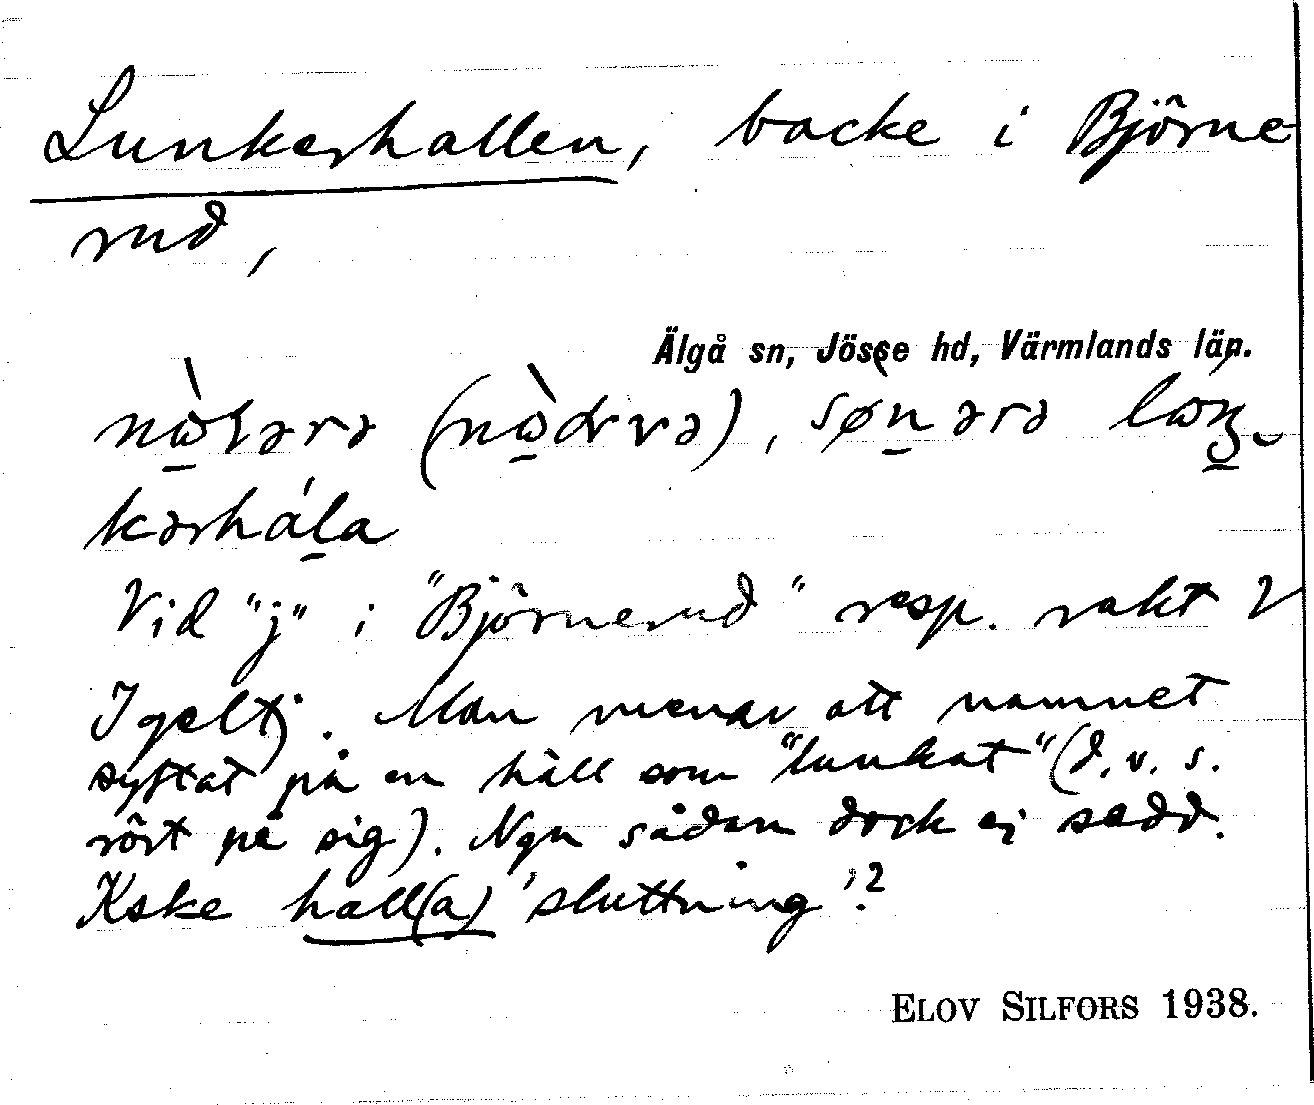 Lunkerhallen, backe i Björne
rud,
Älgå sn, Jösse hd, Värmlands län.
kərhála
Vid "j" i "Björnerud" resp. rakt V
Igeltj. Man menar att namnet
syftat på en häll som "lunkat" (d.v.s.
rört på sig). Ngn sådan dock ej sedd.
Kske hall(a) 'sluttning'?
ELOV SILFORS 1938.